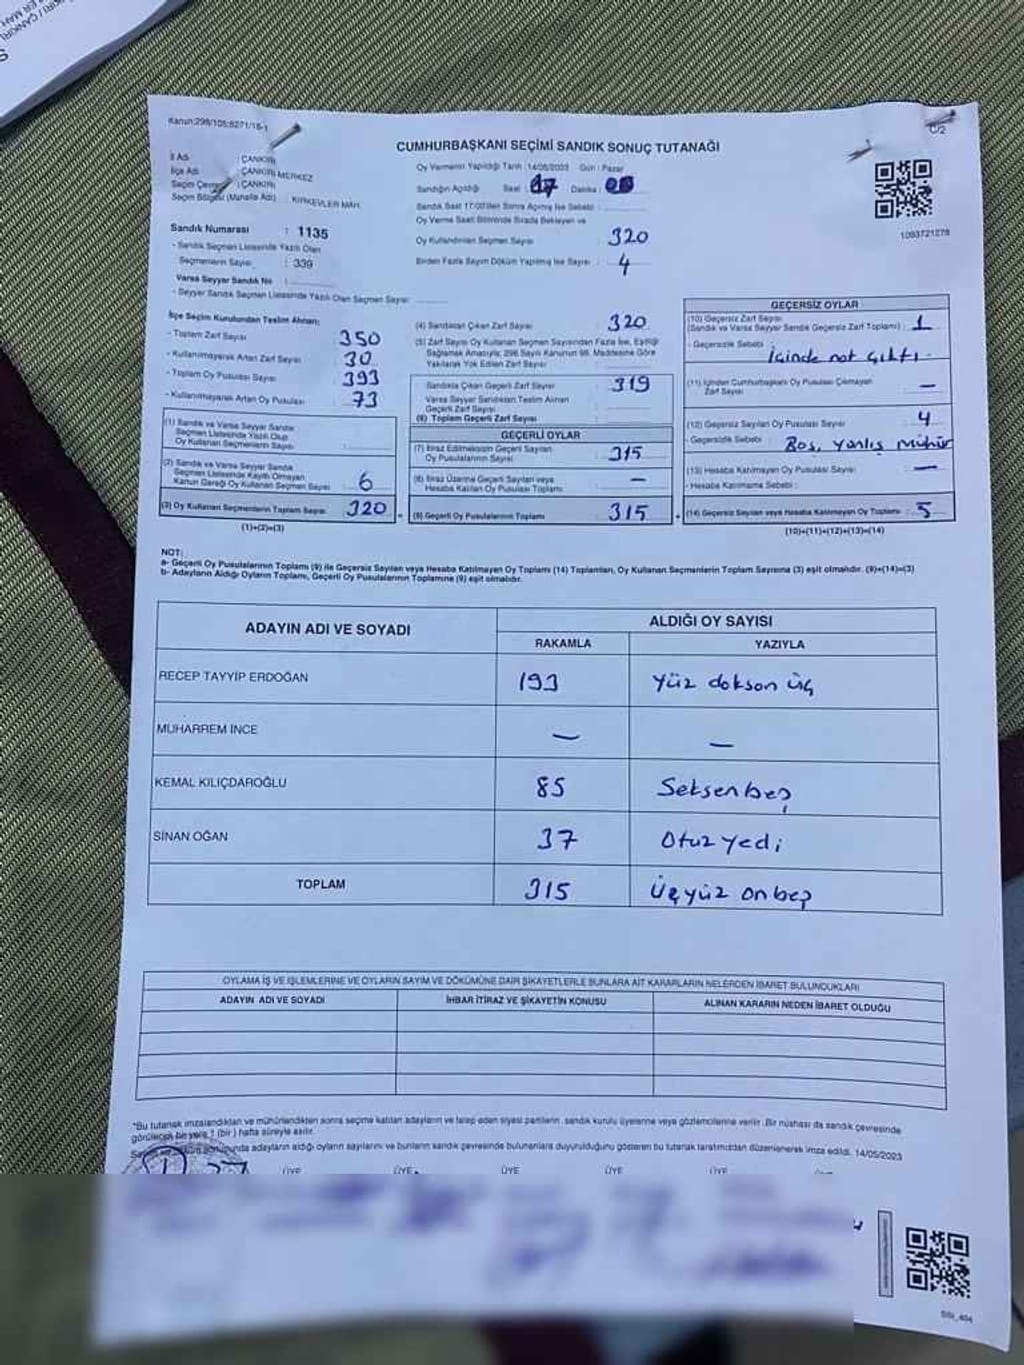 Kanun:298/105;6271/16-1
C/2
CUMHURBAŞKANI SEÇİMİ SANDIK SONUÇ TUTANAĞI
İl Adı : ÇANKIRI
İlçe Adı : ÇANKIRI MERKEZ
Seçim Çevresi : ÇANKIRI
Seçim Bölgesi (Mahalle Adı) : KIRKEVLER MAH.
Sandık Numarası : 1135
- Sandık Seçmen Listesinde Yazılı Olan
Seçmenlerin Sayısı : 339
Varsa Seyyar Sandık No :
- Seyyar Sandık Seçmen Listesinde Yazılı Olan Seçmen Sayısı:
Oy Vermenin Yapıldığı Tarih :14/05/2023 Gün : Pazar
Sandığın Açıldığı Saat : 17 Dakika : 00
Sandık Saat 17:00'den Sonra Açılmış İse Sebebi :
Oy Verme Saati Bitiminde Sırada Bekleyen ve
Oy Kullandırılan Seçmen Sayısı : 320
Birden Fazla Sayım Döküm Yapılmış İse Sayısı : 4
1093721278
İlçe Seçim Kurulundan Teslim Alınan:
- Toplam Zarf Sayısı : 350
- Kullanılmayarak Artan Zarf Sayısı : 30
- Toplam Oy Pusulası Sayısı : 393
- Kullanılmayarak Artan Oy Pusulası : 73
(1) Sandık ve Varsa Seyyar Sandık
Seçmen Listesinde Yazılı Olup
Oy Kullanan Seçmenlerin Sayısı :
(2) Sandık ve Varsa Seyyar Sandık
Seçmen Listesinde Kayıtlı Olmayan
Kanun Gereği Oy Kullanan Seçmen Sayısı : 6
(3) Oy Kullanan Seçmenlerin Toplam Sayısı : 320
(1)+(2)=(3)
(4) Sandıktan Çıkan Zarf Sayısı : 320
(5) Zarf Sayısı Oy Kullanan Seçmen Sayısından Fazla İse, Eşitliği
Sağlamak Amacıyla; 298 Sayılı Kanunun 98. Maddesine Göre
Yakılarak Yok Edilen Zarf Sayısı :
Sandıkta Çıkan Geçerli Zarf Sayısı : 319
Varsa Seyyar Sandıktan Teslim Alınan
Geçerli Zarf Sayısı :
(6) Toplam Geçerli Zarf Sayısı :
GEÇERLİ OYLAR
(7) İtiraz Edilmeksizin Geçerli Sayılan
Oy Pusulalarının Sayısı : 315
(8) İtiraz Üzerine Geçerli Sayılan veya
Hesaba Katılan Oy Pusulası Toplamı : —
(9) Geçerli Oy Pusulalarının Toplamı : 315
GEÇERSİZ OYLAR
(10) Geçersiz Zarf Sayısı
(Sandık ve Varsa Seyyar Sandık Geçersiz Zarf Toplamı) : 1
- Geçersizlik Sebebi :
İçinde not çıktı.
(11) İçinden Cumhurbaşkanı Oy Pusulası Çıkmayan
Zarf Sayısı : —
(12) Geçersiz Sayılan Oy Pusulası Sayısı : 4
- Geçersizlik Sebebi : Boş, yanlış mühür
(13) Hesaba Katılmayan Oy Pusulası Sayısı : —
- Hesaba Katılmama Sebebi :
(14) Geçersiz Sayılan veya Hesaba Katılmayan Oy Toplamı : 5
(10)+(11)+(12)+(13)=(14)
NOT:
a- Geçerli Oy Pusulalarının Toplamı (9) ile Geçersiz Sayılan veya Hesaba Katılmayan Oy Toplamı (14) Toplamları, Oy Kullanan Seçmenlerin Toplam Sayısına (3) eşit olmalıdır. (9)+(14)=(3)
b- Adayların Aldığı Oyların Toplamı, Geçerli Oy Pusulalarının Toplamına (9) eşit olmalıdır.
ADAYIN ADI VE SOYADI
ALDIĞI OY SAYISI
RAKAMLA YAZIYLA
RECEP TAYYİP ERDOĞAN 193 Yüz dokson üç
MUHARREM İNCE — —
KEMAL KILIÇDAROĞLU 85 Seksenbeş
SİNAN OĞAN 37 Otuz yedi
TOPLAM 315 Üçyüz onbeş
OYLAMA İŞ VE İŞLEMLERİNE VE OYLARIN SAYIM VE DÖKÜMÜNE DAİR ŞİKAYETLERLE BUNLARA AİT KARARLARIN NELERDEN İBARET BULUNDUKLARI
ADAYIN ADI VE SOYADI İHBAR İTİRAZ VE ŞİKAYETİN KONUSU ALINAN KARARIN NEDEN İBARET OLDUĞU
*Bu tutanak imzalandıktan ve mühürlendikten sonra seçime katılan adayların ve talep eden siyasi partilerin, sandık kurulu üyelerine veya gözlemcilerine verilir. Bir nüshası da sandık çevresinde
görülecek bir yere 1 (bir) hafta süreyle asılır.
adayların aldığı oyların sayılarını ve bunların sandık çevresinde bulunanlara duyurulduğunu gösteren bu tutanak tarafımızdan düzenlenerek imza edildi. 14/05/2023
ÜYE ÜYE ÜYE ÜYE ÜYE